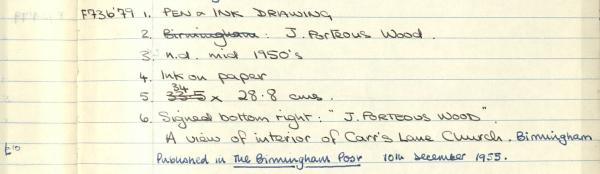 F736'79 1. PEN & INK DRAWING
2. Birmingham : J. Porteous Wood.
3. n.d. mid 1950's
4. Ink on paper
34
5. 33.5 x 28.8 cms.
6. Signed bottom right : "J. PORTEOUS WOOD".
A view of interior of Carr's Lane Church. Birmingham
£10 Published in The Birmingham Post 10th December 1955.